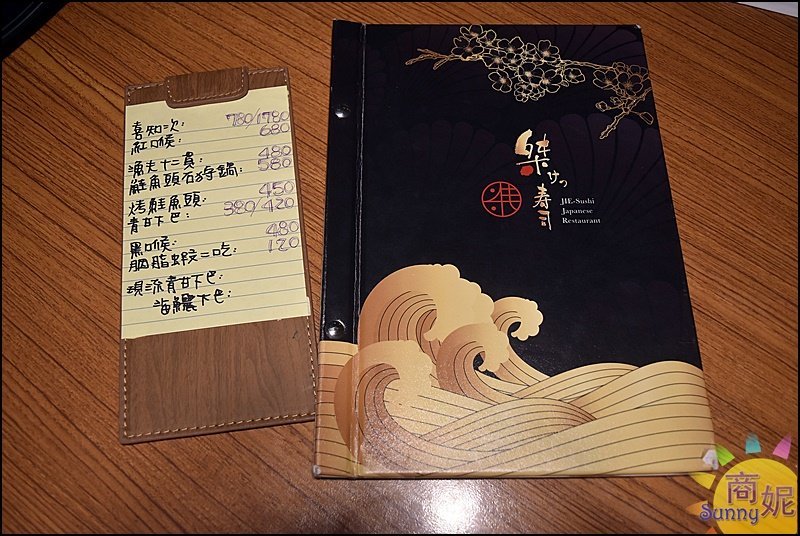 喜知次: 780/1780
紅喉: 680
漁夫十二貫: 480
鮭魚頭石狩鍋: 580
烤鮭魚頭: 450
青甘下巴: 380/420
黑喉: 480
胭脂蝦二吃: 120
現流青甘下巴:
海鱺下巴:
桀けつ寿司
JIE-Sushi
Japanese
Restaurant
商妮
Sunny